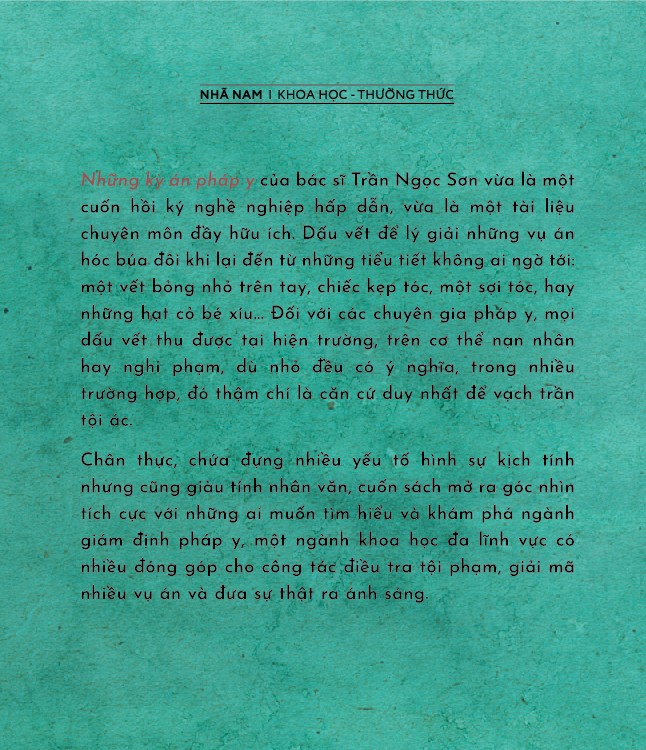 NHÃ NAM | KHOA HỌC - THƯỜNG THỨC
Những kỳ án pháp y của bác sĩ Trần Ngọc Sơn vừa là một
cuốn hồi ký nghề nghiệp hấp dẫn, vừa là một tài liệu
chuyên môn đầy hữu ích. Dấu vết để lý giải những vụ án
hóc búa đôi khi lại đến từ những tiểu tiết không ai ngờ tới:
một vết bỏng nhỏ trên tay, chiếc kẹp tóc, một sợi tóc, hay
những hạt cỏ bé xíu... Đối với các chuyên gia pháp y, mọi
dấu vết thu được tại hiện trường, trên cơ thể nạn nhân
hay nghi phạm, dù nhỏ đều có ý nghĩa, trong nhiều
trường hợp, đó thậm chí là căn cứ duy nhất để vạch trần
tội ác.
Chân thực, chứa đựng nhiều yếu tố hình sự kịch tính
nhưng cũng giàu tính nhân văn, cuốn sách mở ra góc nhìn
tích cực với những ai muốn tìm hiểu và khám phá ngành
giám định pháp y, một ngành khoa học đa lĩnh vực có
nhiều đóng góp cho công tác điều tra tội phạm, giải mã
nhiều vụ án và đưa sự thật ra ánh sáng.